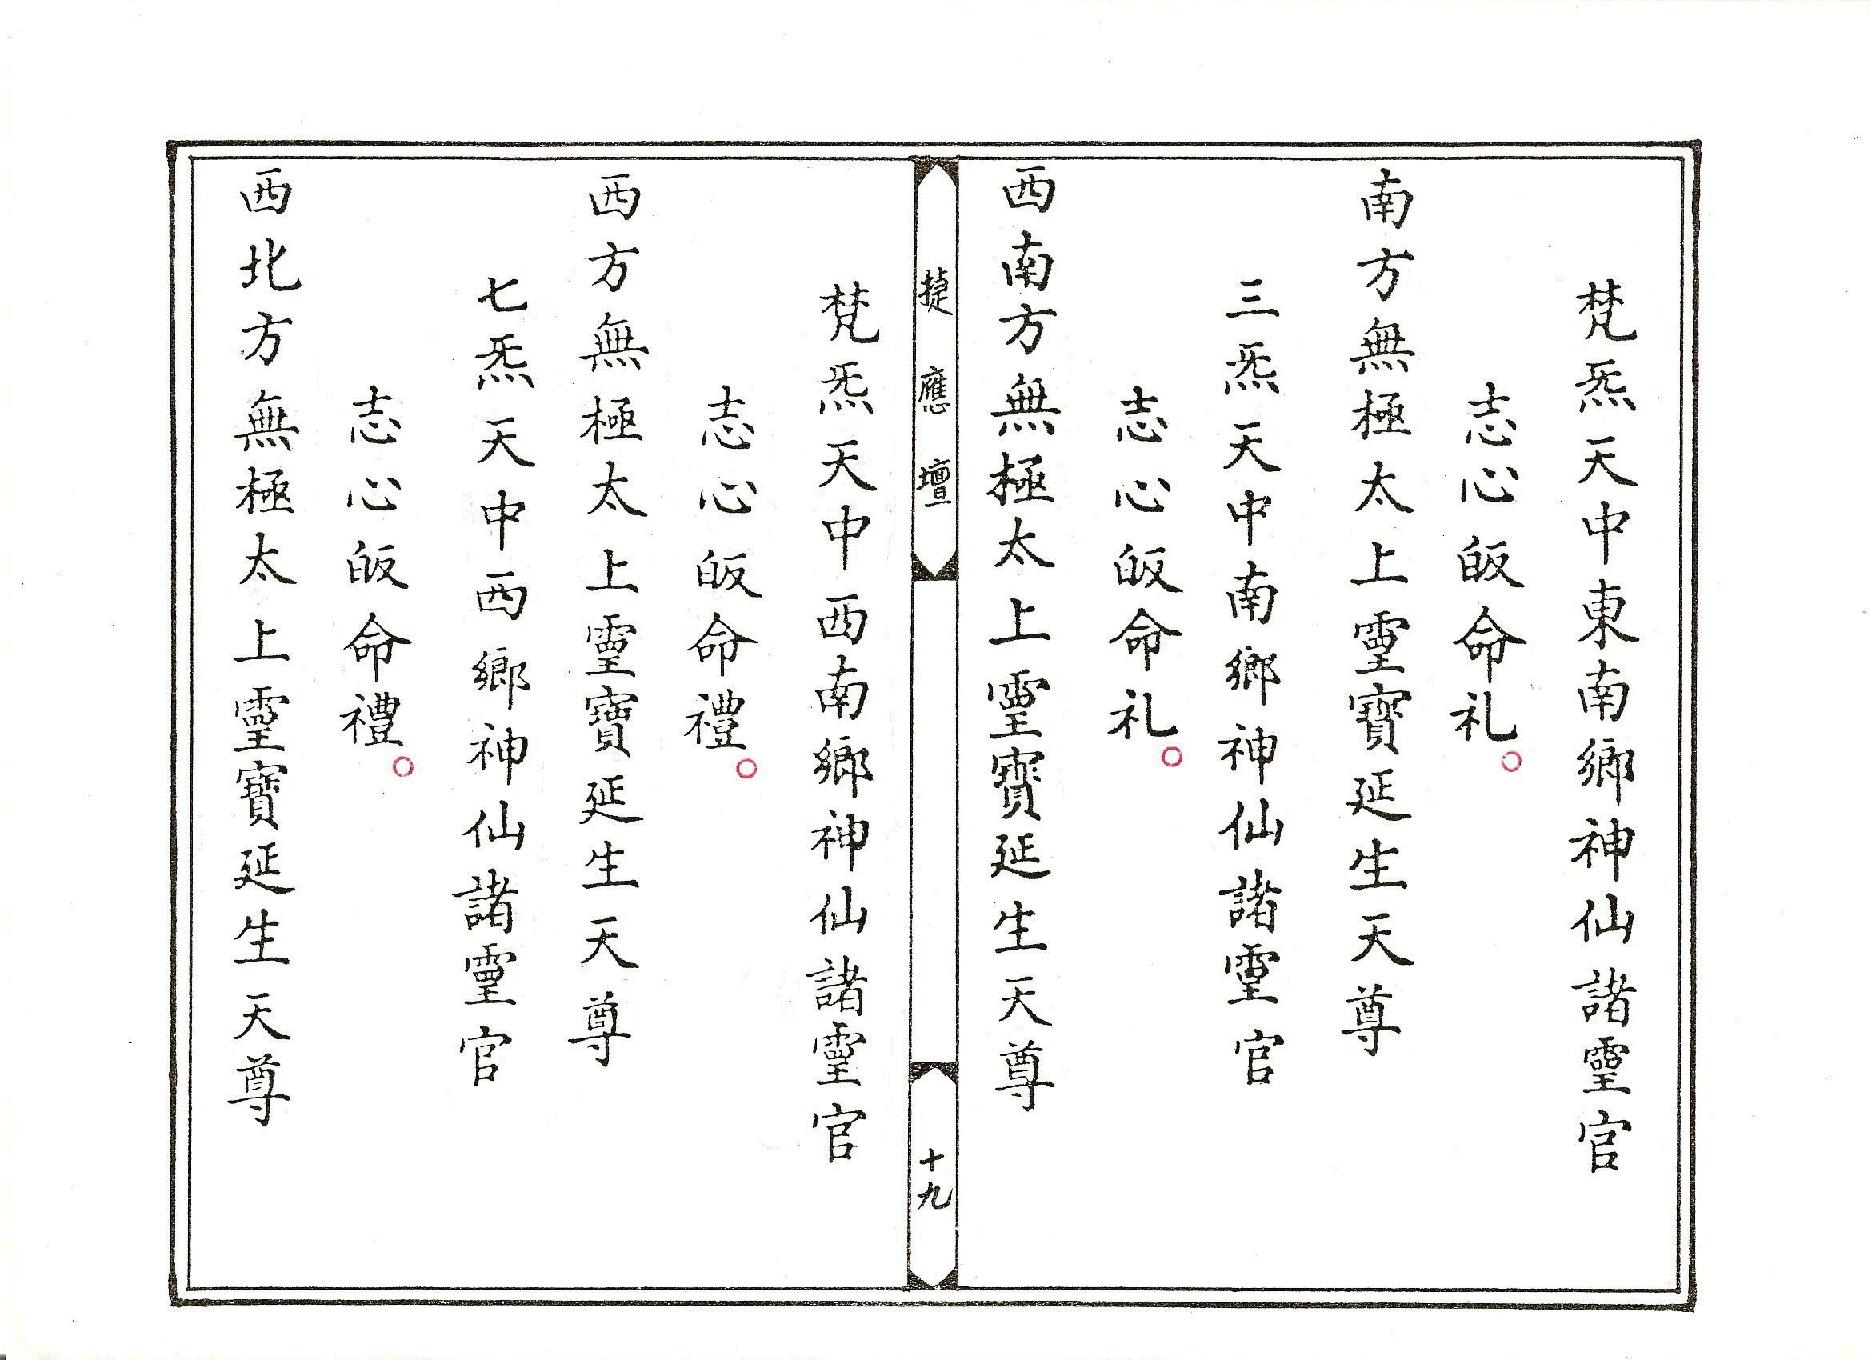 梵炁天中東南鄉神仙諸霊官
志心皈命礼
南方無極太上霊寶延生天尊
三炁天中南鄉神仙諸霊官
志心皈命礼
西南方無極太上霊寶延生天尊
捷應壇
十九
梵炁天中西南鄉神仙諸霊官
志心皈命禮
西方無極太上霊寶延生天尊
七炁天中西鄉神仙諸霊官
志心皈命禮
西北方無極太上霊寶延生天尊